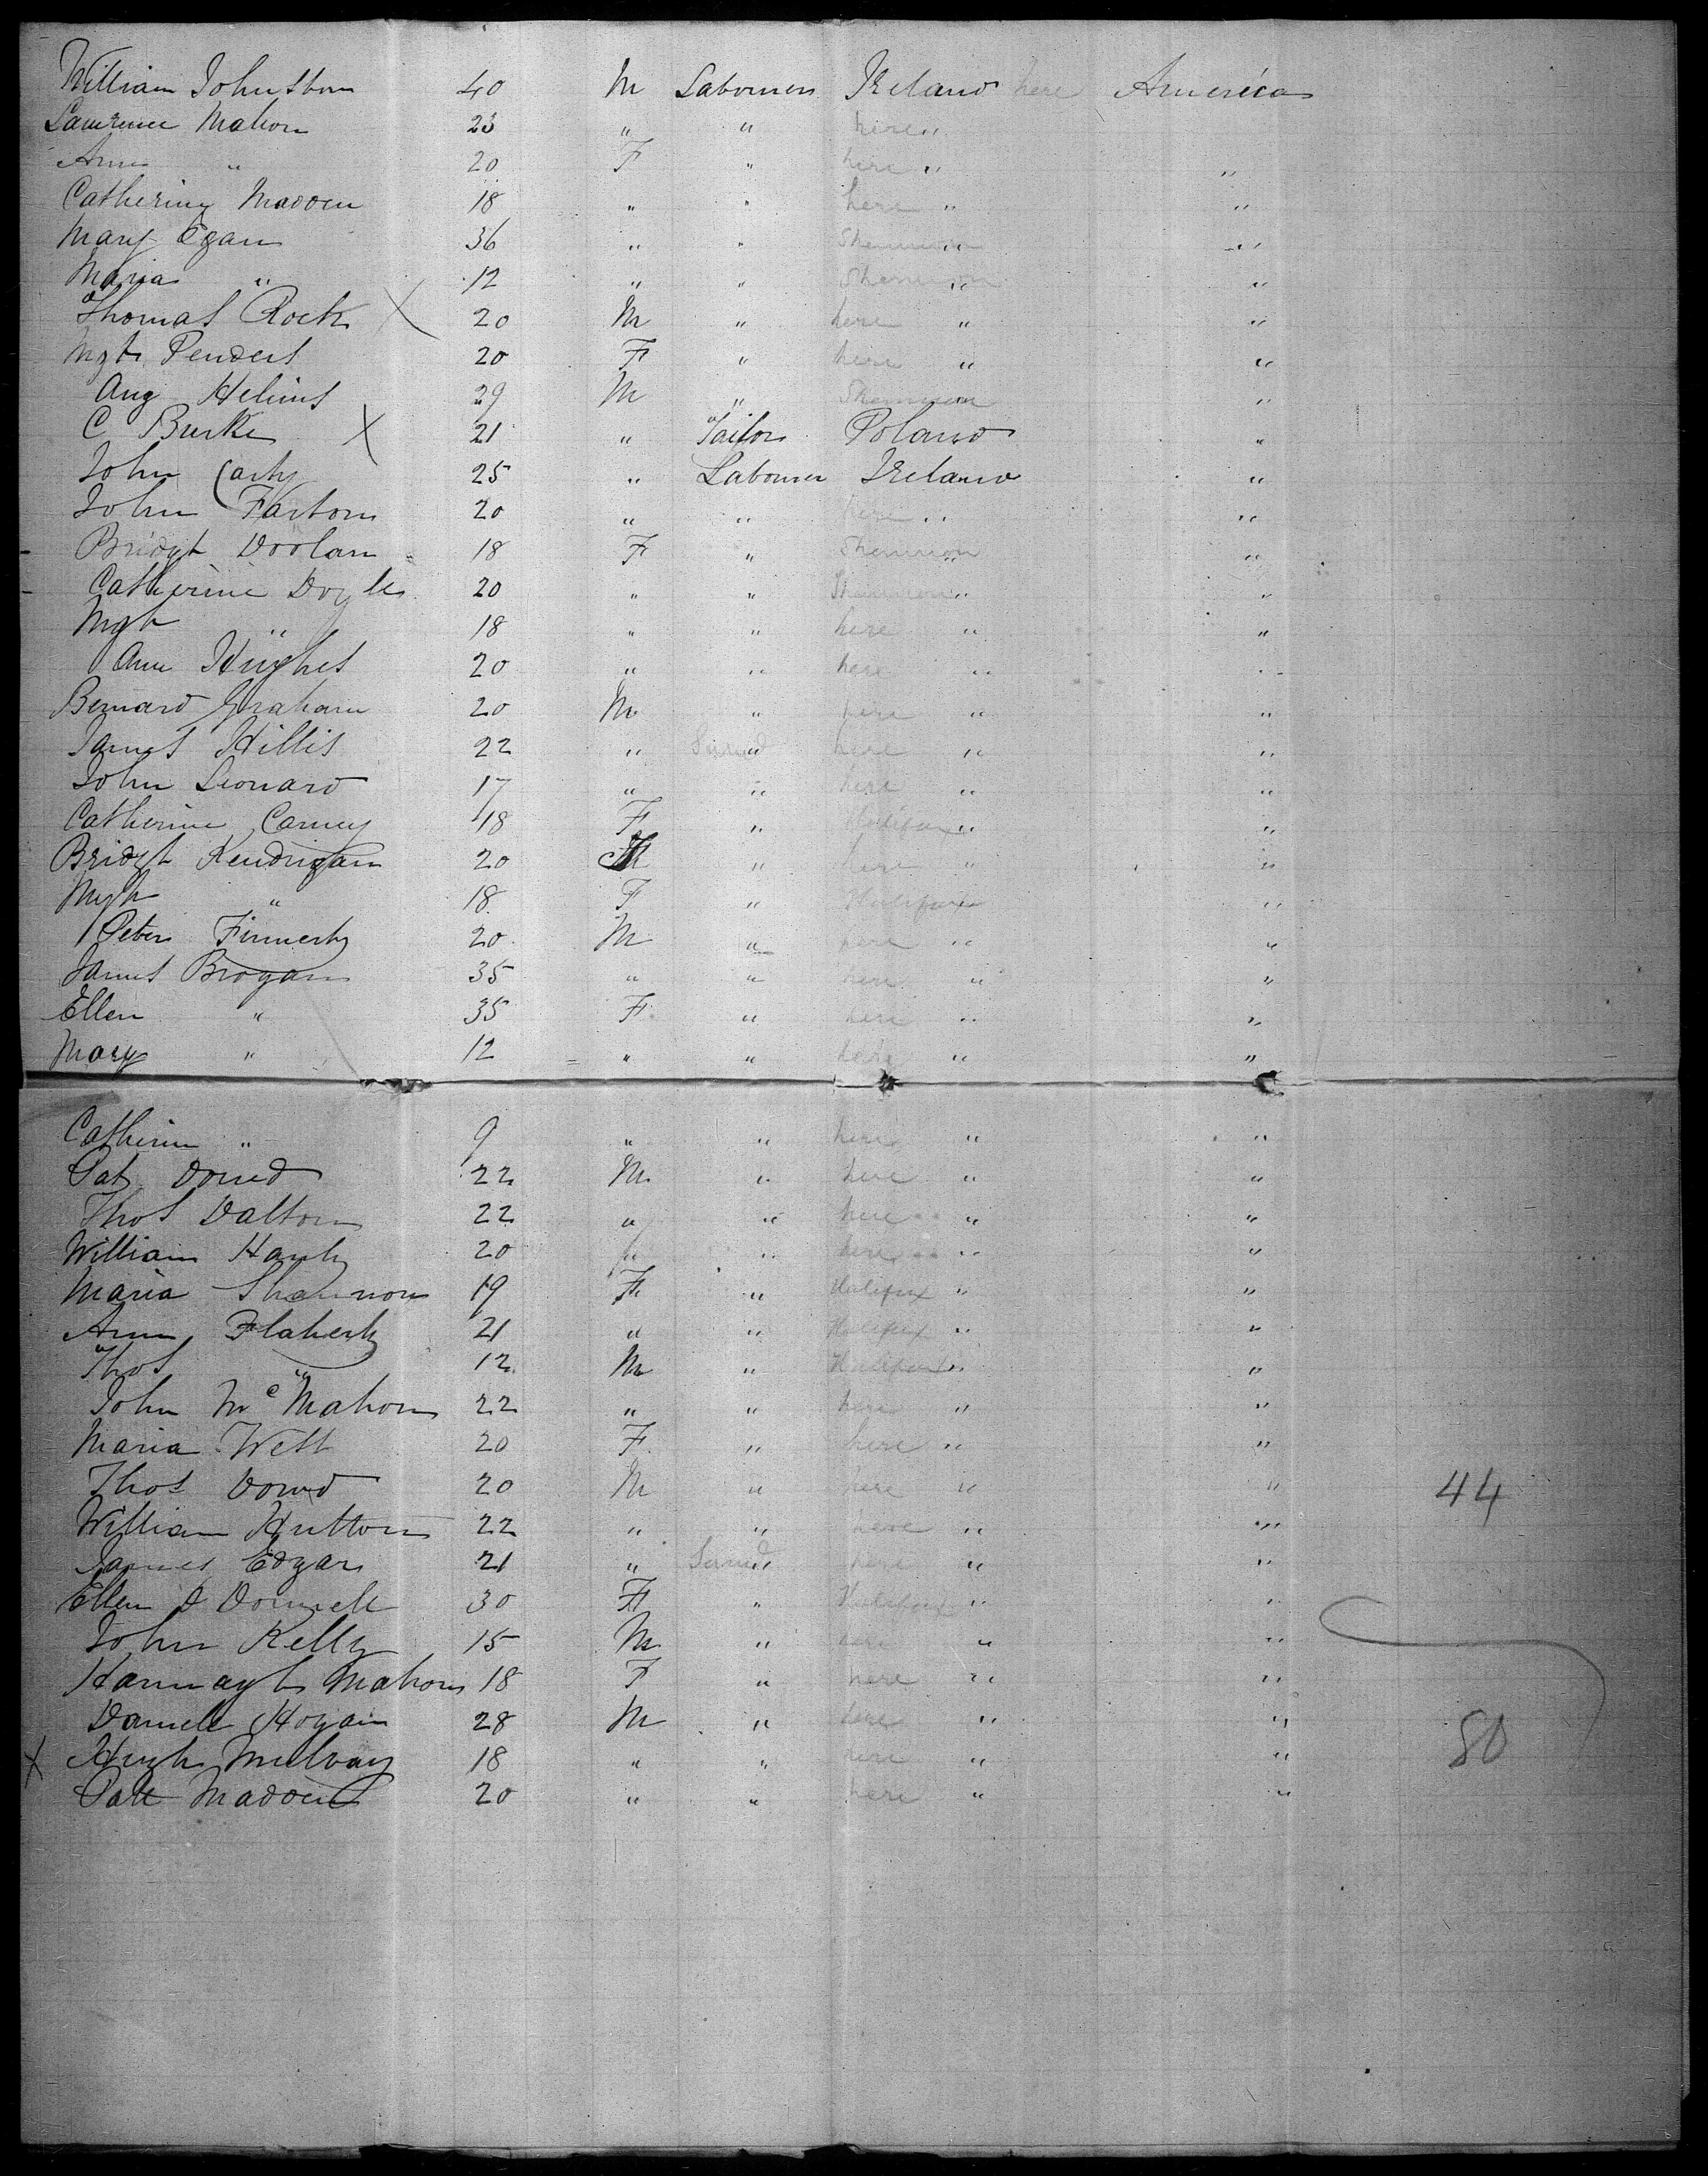 William Johnston 40 M Labourer Ireland here America
Lawrence Mahon 23 " " here "
Ann " 20 F " here " "
Catherine Madden 18 " " here " "
Mary Egan 36 " " " "
Maria " 12 " " " "
Thomas Rock X 20 M " here " "
Mgt Penders 20 F " here " "
Aug Helims 29 M " "
C Burke X 21 " Tailor Poland "
John Carty 25 " Labourer Ireland "
John Farton 20 " " here " "
Bridgt Doolan 18 F " " "
Catherine Doyle 20 " " " "
Mgt " 18 " " here " "
Ann Hughes 20 " " here " "
Bernard Graham 20 M " here " "
James Hillis 22 " " here " "
John Leonard 17 " " here " "
Catherine Carney 18 F " Halifax " "
Bridgt Kendrigan 20 " here " "
Mgt " 18 F " Halifax " "
Peter Finnerty 20 M " here " "
James Brogan 35 " " here " "
Ellen " 35 F " here " "
Mary " 12 " " here " "
Catherin " 9 " " here " "
Pat Dowd 22 M " here " "
Thos Dalton 22 " " here " "
William Hanly 20 " " here " "
Maria Shannon 19 F " Halifax " "
Ann Flaherty 21 " " Halifax " "
Thos " 12 M " Halifax " "
John McMahon 22 " " here " "
Maria West 20 F " here " "
Thos Dowd 20 M " here " " 44
William Hutton 22 " " here " "
James Edgar 21 " " here " "
Ellen O Donnell 30 F " Halifax " "
John Kelly 15 M " here " "
Hannagh Mahon 18 F " here " "
Daniel Hogan 28 M " here " "
X Hugh Mulvay 18 " " here " " 80
Patt Madden 20 " " here " "